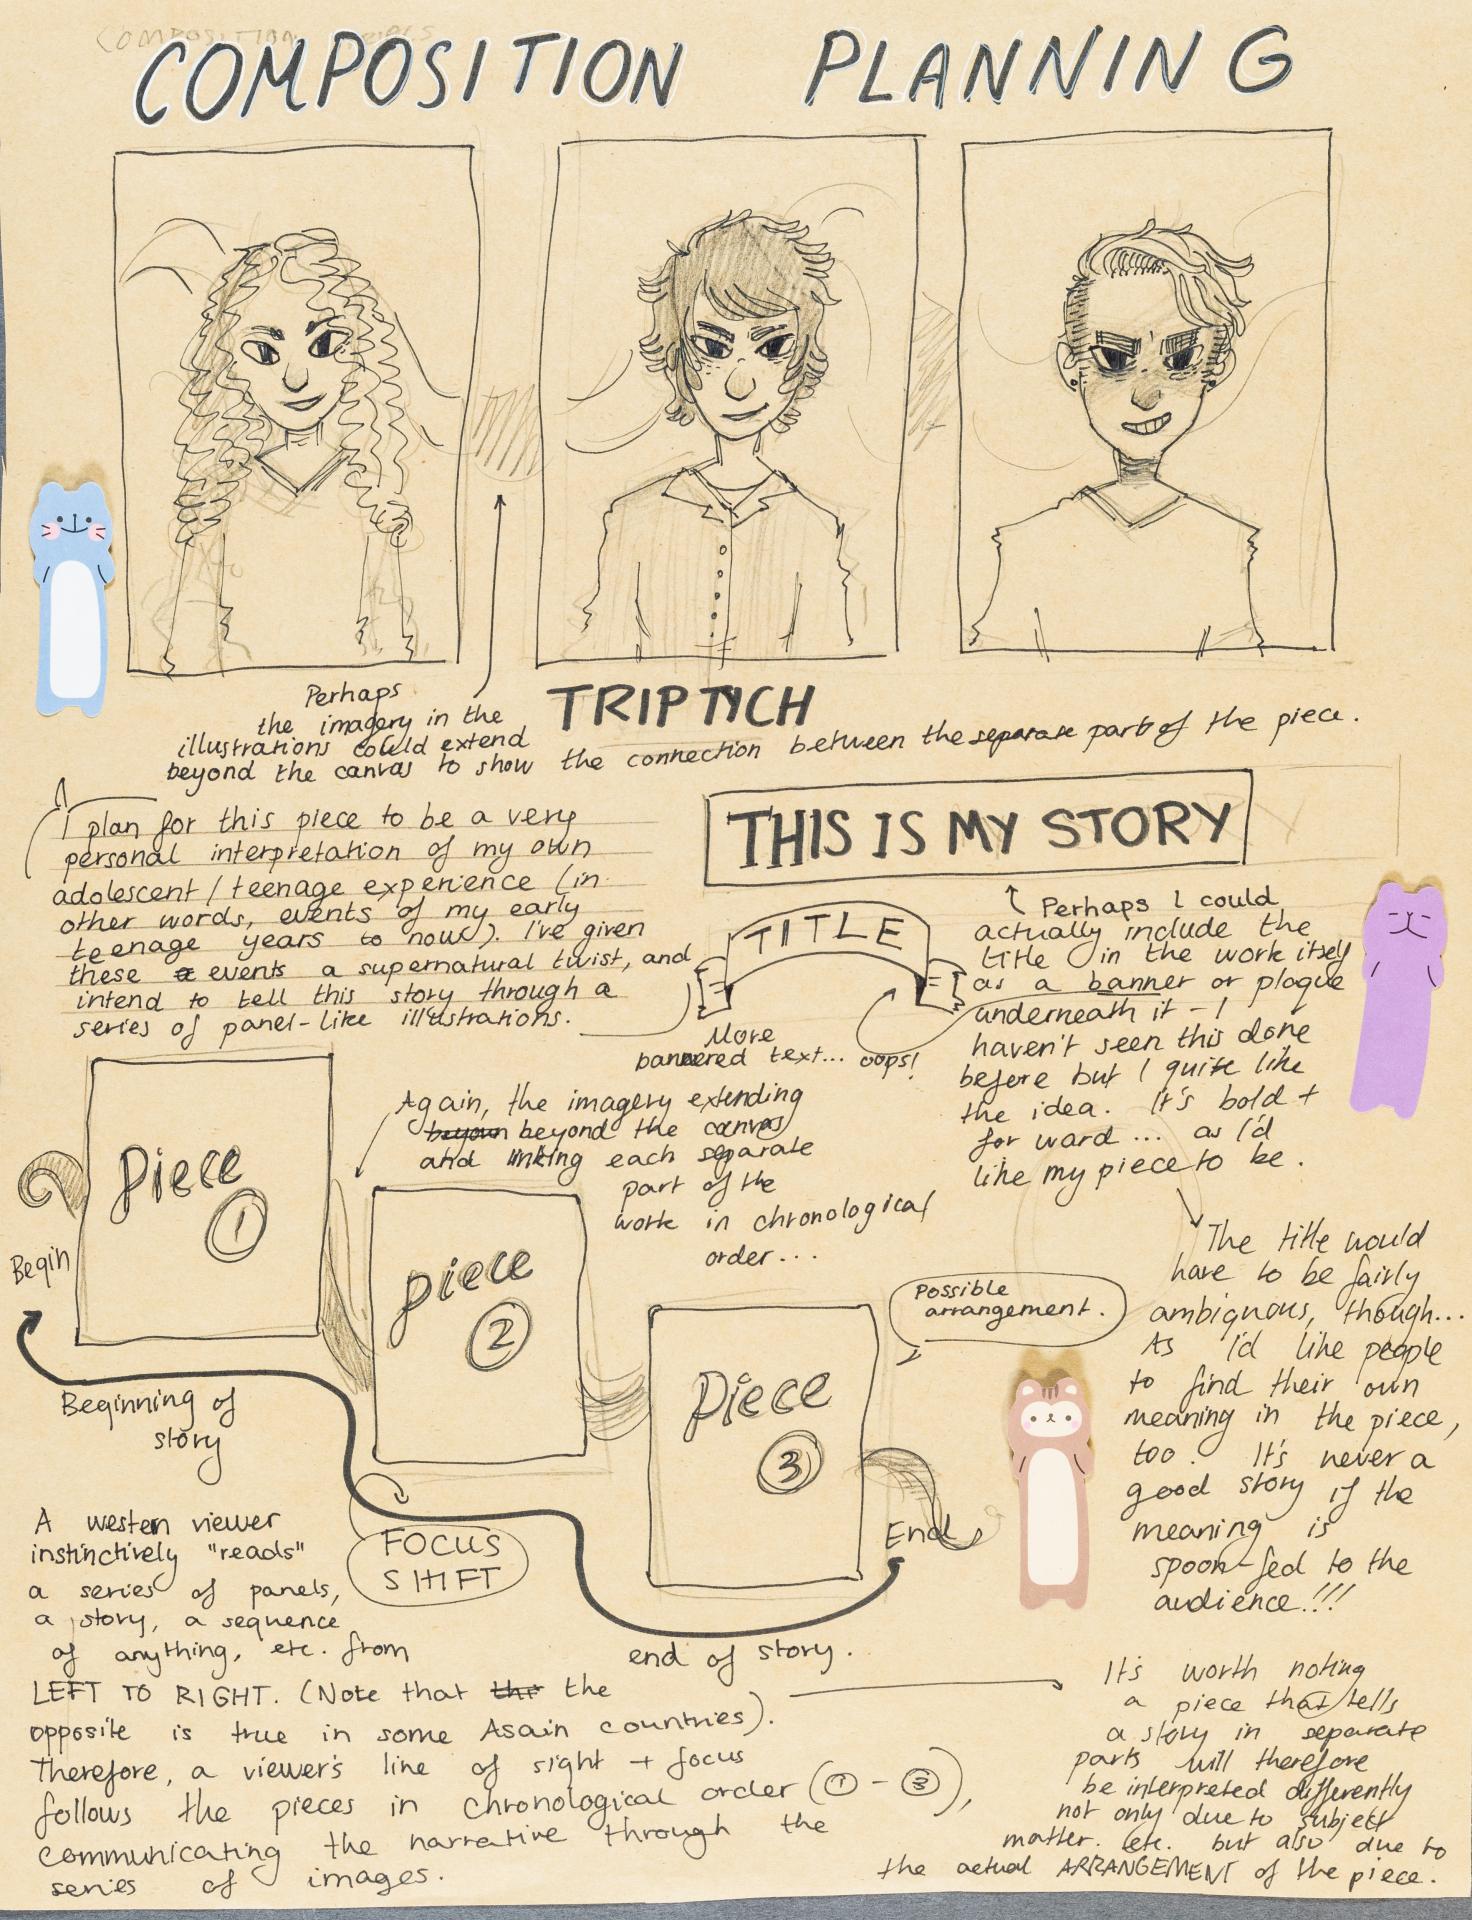 COMPOSITION PLANNING
Perhaps
the imagery in the
illustrations could extend
beyond the canvas to show the connection between the separate part of the piece.
TRIPTYCH
I plan for this piece to be a very
personal interpretation of my own
adolescent / teenage experience (in
other words, events of my early
teenage years to now). I've given
these events a supernatural twist, and
intend to tell this story through a
series of panel-like illustrations.
THIS IS MY STORY
TITLE
More
bannered text... oops!
Perhaps I could
actually include the
title in the work itself
as a banner or plaque
underneath it - I
haven't seen this done
before but I quite like
the idea. It's bold +
for ward... as I'd
like my piece to be.
The title would
have to be fairly
ambiguous, though...
As I'd like people
to find their own
meaning in the piece,
too. It's never a
good story if the
meaning is
spoon-fed to the
audience!!!
Again, the imagery extending
beyond the canvas
and linking each separate
part of the
work in chronological
order...
Piece
1
Begin
Beginning of
story
piece
2
FOCUS
SHIFT
Possible
arrangement.
Piece
3
End
end of story.
A western viewer
instinctively "reads"
a series of panels,
a story, a sequence
of anything, etc. from
LEFT TO RIGHT. (Note that the the
opposite is true in some Asain countries).
Therefore, a viewer's line of sight + focus
follows the pieces in chronological order (1 - 3),
communicating the narrative through the
series of images.
It's worth noting
a piece that tells
a story in separate
parts will therefore
be interpreted differently
not only due to subject
matter. etc. but also due to
the actual ARRANGEMENT of the piece.